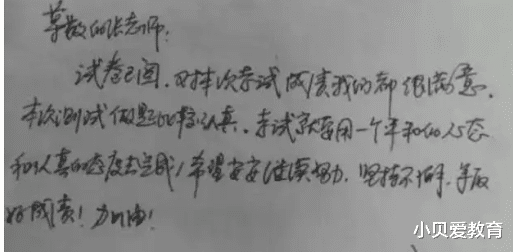 尊敬的张老师:
试卷已阅,对本次考试成绩我们都很满意。
本次测试做题比较认真,考试就要用一个平和的心态
和认真的态度去完成,希望安安继续努力,坚持不懈,争取
好成绩!加油!
小贝爱教育